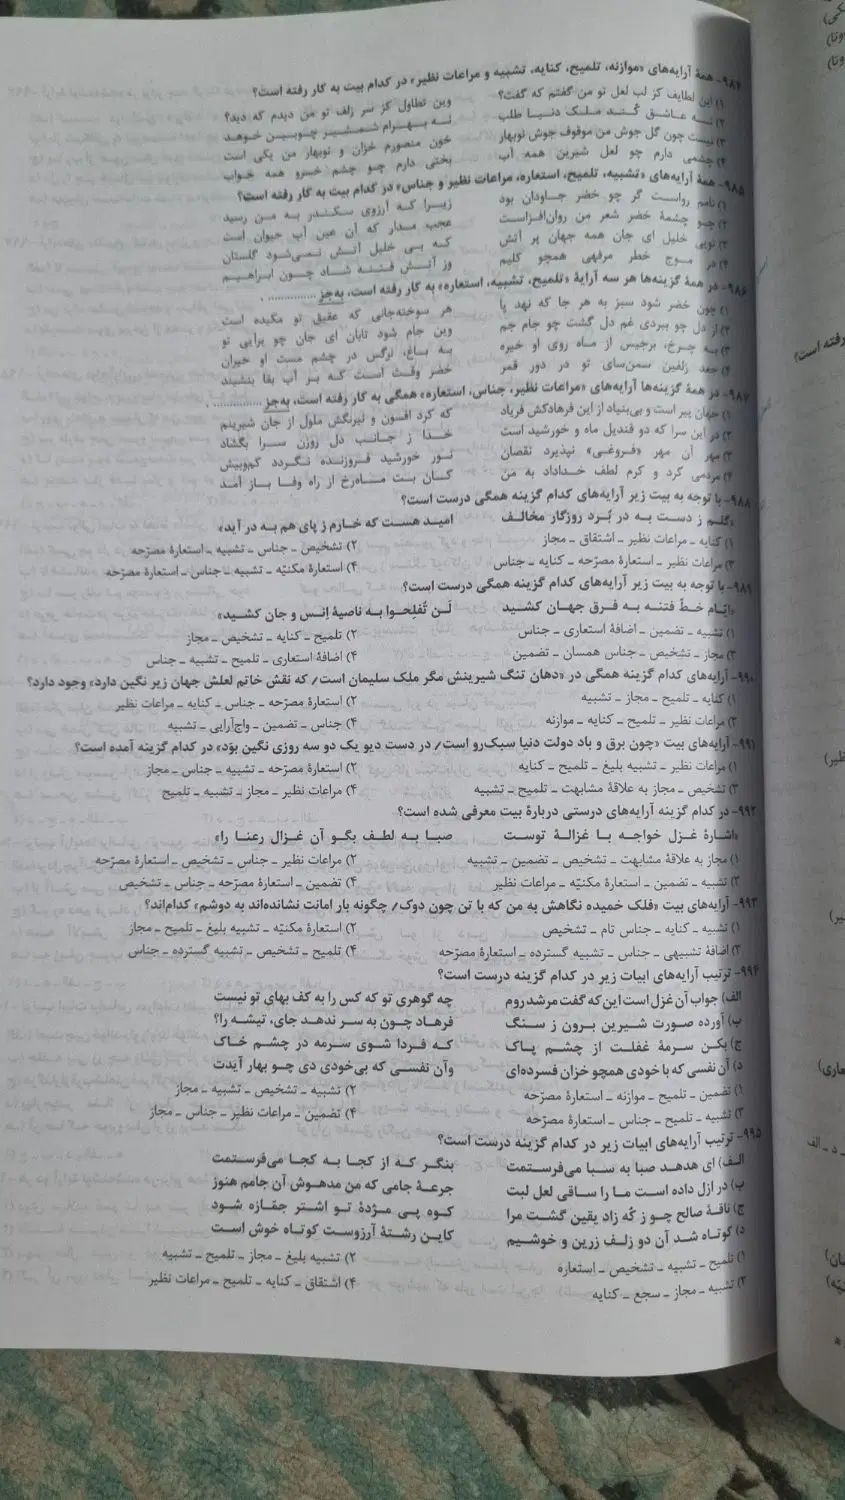 ۹۸۴- همهٔ آرایه‌های «موازنه، تلمیح، کنایه، تشبیه و مراعات نظیر» در کدام بیت به کار رفته است؟
۱) این لطایف کز لب لعل تو من گفتم که گفت؟ وین تطاول کز سر زلف تو من دیدم که دید؟
۲) نه عاشق کُند ملک دنیا طلب نه بهرام شمشیر چوبین خوهد
۳) نیست چون گل جوش من موقوف جوش نوبهار خون منصورم خزان و نوبهار من یکی است
۴) چشمی دارم چو لعل شیرین همه آب بختی دارم چو چشم خسرو همه خواب
۹۸۵- همهٔ آرایه‌های «تشبیه، تلمیح، استعاره، مراعات نظیر و جناس» در کدام بیت به کار رفته است؟
۱) نامم رواست گر چو خضر جاودان بود زیرا که آرزوی سکندر به من رسید
۲) چو چشمهٔ خضر شعر من روان‌افزاست عجب مدار که آن عین آب حیوان است
۳) تویی خلیل ای جان همه جهان پر آتش که بی خلیل آتش نمی‌شود گلستان
۴) در موج خطر مرفهی همچو کلیم وز آتش فتنه شاد چون ابراهیم
۹۸۶- در همهٔ گزینه‌ها هر سه آرایهٔ «تلمیح، تشبیه، استعاره» به کار رفته است، به‌جز ............... .
۱) چون خضر شود سبز به هر جا که نهد پا هر سوخته‌جانی که عقیق تو مکیده است
۲) از دل چو ببردی غم دل گشت چو جام جم وین جام شود تابان ای جان چو برآیی تو
۳) به چرخ، برجیس از ماه روی او خیره به باغ، نرگس در چشم مست او حیران
۴) جعد زلفین سمن‌سای تو در دور قمر خضر وقت است که بر آب بقا بنشیند
۹۸۷- در همهٔ گزینه‌ها آرایه‌های «مراعات نظیر، جناس، استعاره» همگی به کار رفته است، به‌جز ............... .
۱) جهان پیر است و بی‌بنیاد از این فرهادکش فریاد که کرد افسون و نیرنگش ملول از جان شیرینم
۲) در این سرا که دو قندیل ماه و خورشید است خدا ز جانب دل روزن سرا بگشاد
۳) مهر آن مهر «فروغی» نپذیرد نقصان نور خورشید فروزنده نگردد کم‌وبیش
۴) مردمی کرد و کرم لطف خداداد به من کان بت ماه‌رخ از راه وفا باز آمد
۹۸۸- با توجه به بیت زیر آرایه‌های کدام گزینه همگی درست است؟
«گلم ز دست به در بُرد روزگار مخالف امید هست که خارم ز پای هم به در آید»
۱) کنایه ـ مراعات نظیر ـ اشتقاق ـ مجاز ۲) تشخیص ـ جناس ـ تشبیه ـ استعارهٔ مصرّحه
۳) مراعات نظیر ـ استعارهٔ مصرّحه ـ کنایه ـ جناس ۴) استعارهٔ مکنیّه ـ تشبیه ـ جناس ـ استعارهٔ مصرّحه
۹۸۹- با توجه به بیت زیر آرایه‌های کدام گزینه همگی درست است؟
«ایّام خطّ فتنه به فرق جهان کشید لَن تُفلِحوا به ناصیهٔ اِنس و جان کشید»
۱) تشبیه ـ تضمین ـ اضافهٔ استعاری ـ جناس ۲) تلمیح ـ کنایه ـ تشخیص ـ مجاز
۳) مجاز ـ تشخیص ـ جناس همسان ـ تضمین ۴) اضافهٔ استعاری ـ تلمیح ـ تشبیه ـ جناس
۹۹۰- آرایه‌های کدام گزینه همگی در «دهان تنگ شیرینش مگر ملک سلیمان است/ که نقش خاتم لعلش جهان زیر نگین دارد» وجود دارد؟
۱) کنایه ـ تلمیح ـ مجاز ـ تشبیه ۲) استعارهٔ مصرّحه ـ جناس ـ کنایه ـ مراعات نظیر
۳) مراعات نظیر ـ تلمیح ـ کنایه ـ موازنه ۴) جناس ـ تضمین ـ واج‌آرایی ـ تشبیه
۹۹۱- آرایه‌های بیت «چون برق و باد دولت دنیا سبک‌رو است/ در دست دیو یک دو سه روزی نگین بوَد» در کدام گزینه آمده است؟
۱) مراعات نظیر ـ تشبیه بلیغ ـ تلمیح ـ کنایه ۲) استعارهٔ مصرّحه ـ تشبیه ـ جناس ـ مجاز
۳) تشخیص ـ مجاز به علاقهٔ مشابهت ـ تلمیح ـ تشبیه ۴) مراعات نظیر ـ مجاز ـ تشبیه ـ تلمیح
۹۹۲- در کدام گزینه آرایه‌های درستی دربارهٔ بیت معرفی شده است؟
«اشارهٔ غزل خواجه با غزالهٔ توست صبا به لطف بگو آن غزال رعنا را»
۱) مجاز به علاقهٔ مشابهت ـ تشخیص ـ تضمین ـ تشبیه ۲) مراعات نظیر ـ جناس ـ تشخیص ـ استعارهٔ مصرّحه
۳) تشبیه ـ تضمین ـ استعارهٔ مکنیّه ـ مراعات نظیر ۴) تضمین ـ استعارهٔ مصرّحه ـ جناس ـ تشخیص
۹۹۳- آرایه‌های بیت «فلک خمیده نگاهش به من که با تن چون دوک/ چگونه بار امانت نشانده‌اند به دوشم» کدام‌اند؟
۱) تشبیه ـ کنایه ـ جناس تام ـ تشخیص ۲) استعارهٔ مکنیّه ـ تشبیه بلیغ ـ تلمیح ـ مجاز
۳) اضافهٔ تشبیهی ـ جناس ـ تشبیه گسترده ـ استعارهٔ مصرّحه ۴) تلمیح ـ تشخیص ـ تشبیه گسترده ـ جناس
۹۹۴- ترتیب آرایه‌های ابیات زیر در کدام گزینه درست است؟
الف) جواب آن غزل است این که گفت مرشد روم چه گوهری تو که کس را به کف بهای تو نیست
ب) آورده صورت شیرین برون ز سنگ فرهاد چون به سر ندهد جای، تیشه را؟
ج) بکن سرمهٔ غفلت از چشم پاک که فردا شوی سرمه در چشم خاک
د) آن نفسی که با خودی همچو خزان فسرده‌ای وآن نفسی که بی‌خودی دی چو بهار آیدت
۱) تضمین ـ تلمیح ـ موازنه ـ استعارهٔ مصرّحه ۲) تشبیه ـ تشخیص ـ تشبیه ـ مجاز
۳) تشبیه ـ تلمیح ـ جناس ـ استعارهٔ مصرّحه ۴) تضمین ـ مراعات نظیر ـ جناس ـ مجاز
۹۹۵- ترتیب آرایه‌های ابیات زیر در کدام گزینه درست است؟
الف) ای هدهد صبا به سبا می‌فرستمت بنگر که از کجا به کجا می‌فرستمت
ب) در ازل داده است ما را ساقی لعل لبت جرعهٔ جامی که من مدهوش آن جامم هنوز
ج) ناقهٔ صالح چو ز کُه زاد یقین گشت مرا کوه پی مژدهٔ تو اشتر جمّازه شود
د) کوتاه شد آن دو زلف زرین و خوشیم کاین رشتهٔ آرزوست کوتاه خوش است
۱) تلمیح ـ تشبیه ـ تشخیص ـ استعاره ۲) تشبیه بلیغ ـ مجاز ـ تلمیح ـ تشبیه
۳) تشبیه ـ مجاز ـ سجع ـ کنایه ۴) اشتقاق ـ کنایه ـ تلمیح ـ مراعات نظیر